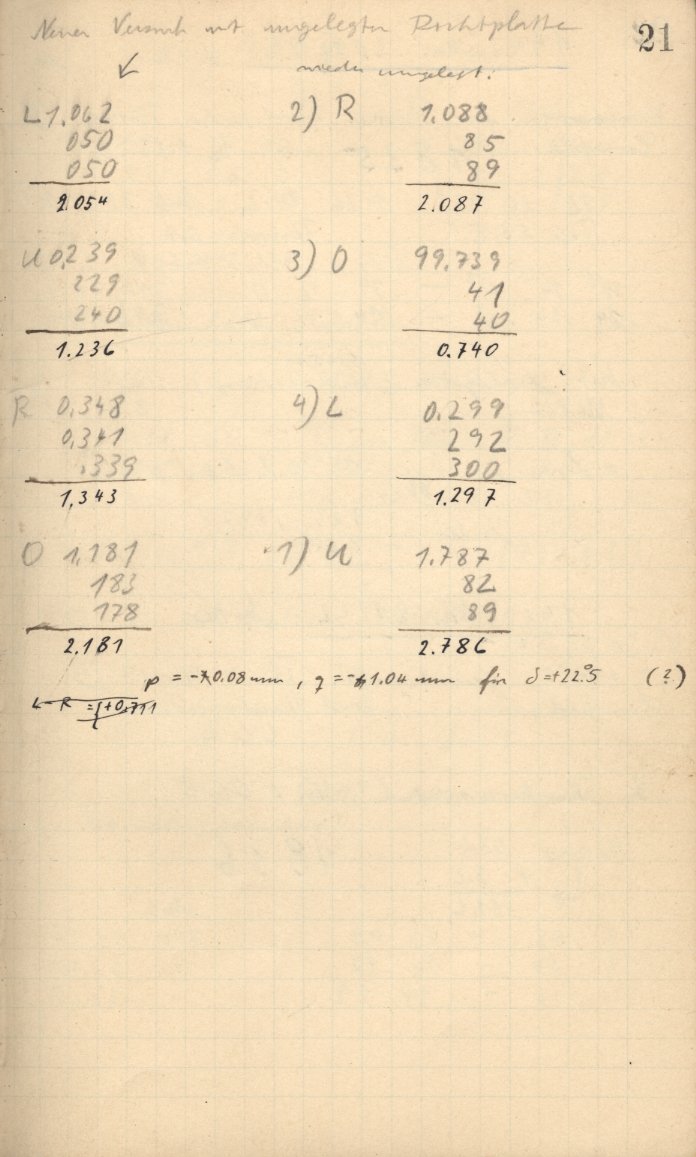 21
Neuer Versuch mit umgelegter
wieder umgelegt:
L 1.062 2) R 1.088
050 85
050 89
2.054 2.087
U 0,239 3) O 99.739
229 41
240 40
1.236 0.740
R 0,348 4) L 0.299
0,341 292
.339 300
1,343 1.297
O 1,181 1) U 1.787
183 82
178 89
2.181 2.786
p = -0.08 mm, q = -1.04 mm für δ=+22°5 (?)
L-R =